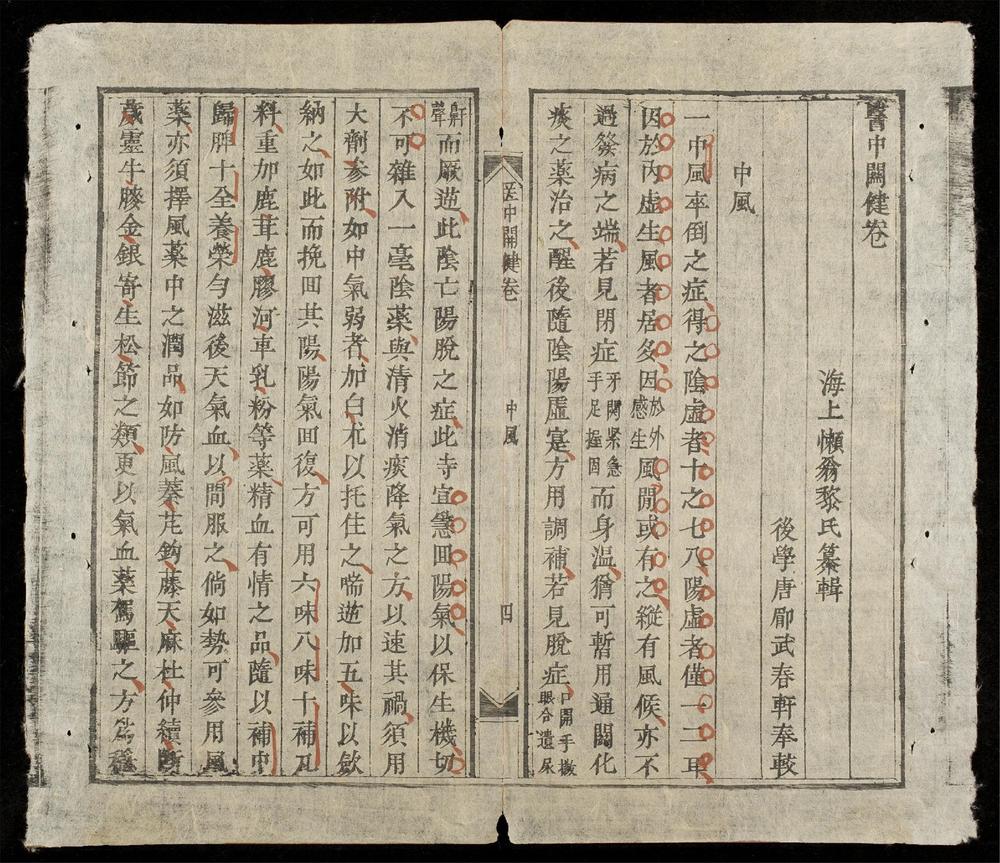 醫中關健卷
海上懶翁黎氏纂輯
後學唐郿武春軒奉較
中風
一中風卒倒之症得之陰虛者十之七八陽虛者僅一二耳
因於內虛生風者居多因於外感生風閒或有之縱有風候亦不
過發病之端若見閉症牙關緊急手足握固而身温猶可暫用通關化
痰之藥治之醒後隨陰陽虛寔方用調補若見脫症口開手撒眼合遺尿
鼾聲而厥逆此陰亡陽脫之症此寺宜急囬陽氣以保生機切
不可雜入一毫陰藥與清火消痰降氣之方以速其禍須用
大劑參附如中氣弱者加白朮以托住之啼逆加五味以斂
納之如此而挽囬其陽陽氣囬復方可用六味八味十補瓦
料重加鹿茸鹿膠河車乳粉等藥精血有情之品隨以補中
歸脾十全養榮勻滋後天氣血以間服之倘如勢可參用風
藥亦須擇風藥中之潤品如防風蓁芃鈎藤天麻杜仲續断
葳靈牛膝金銀寄生松節之類更以氣血藥駕驅之方為穩
医中関健卷
中風
四